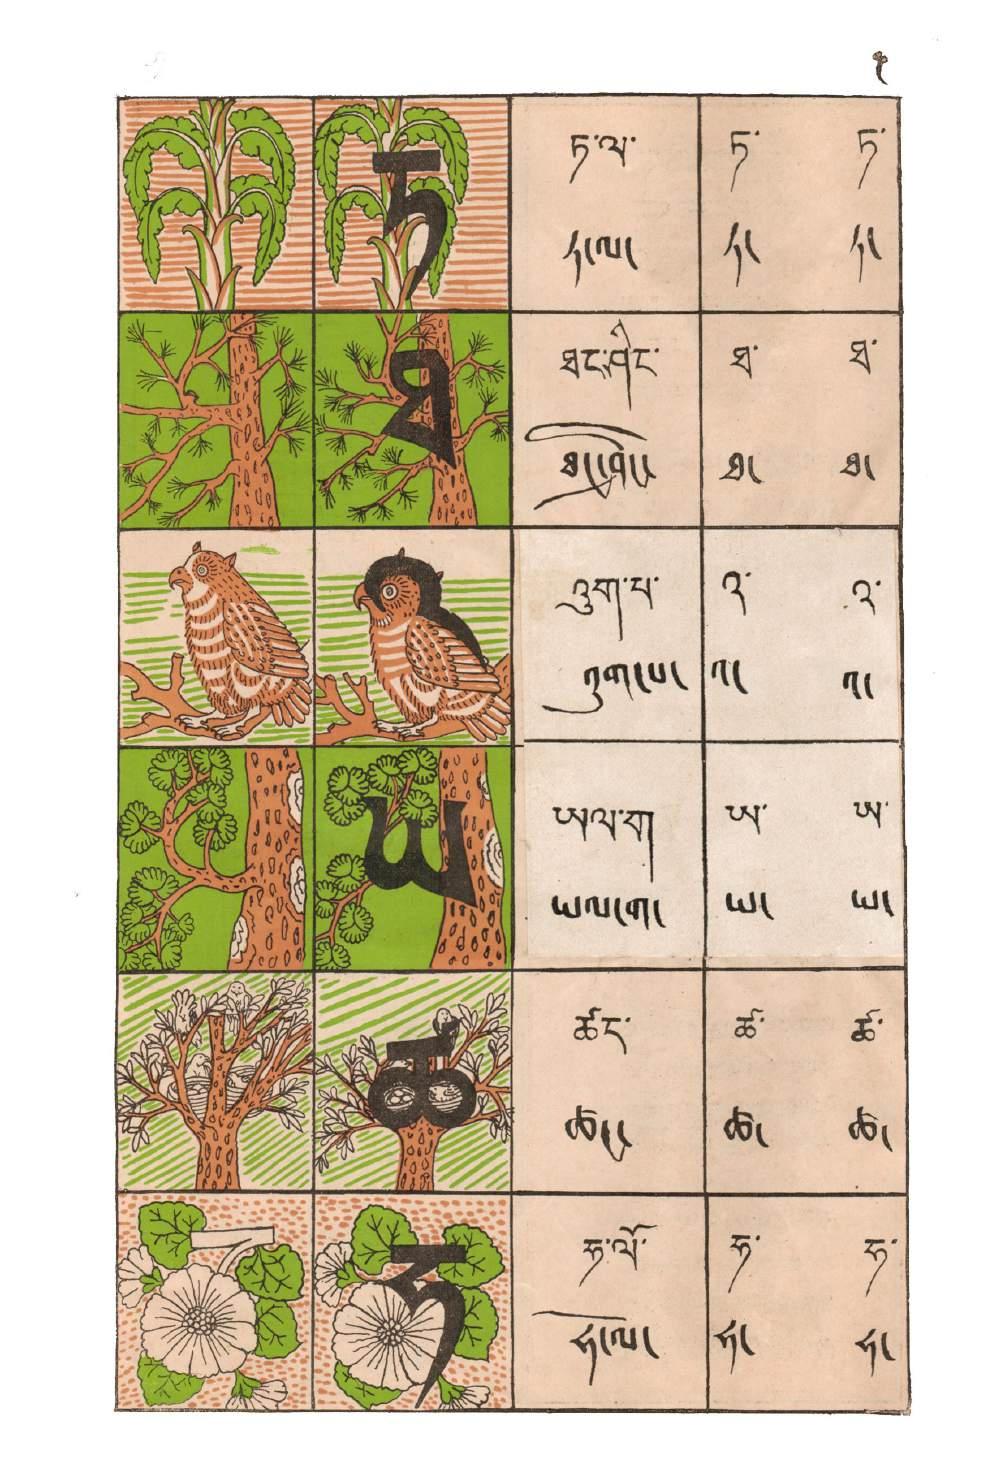 ༡
ཏ ཏ་ལ་ ཏ་ ཏ་
ཏ་ལ་ ཏ་ ཏ་
ཐ ཐང་ཤིང་ ཐ་ ཐ་
ཐང་ཤིང་ ཐ་ ཐ་
འ འུག་པ་ འ་ འ་
འུག་པ་ འ་ འ་
ཡ ཡལ་ག ཡ་ ཡ་
ཡལ་ག་ ཡ་ ཡ་
ཚ ཚང་ ཚ་ ཚ་
ཚང་ ཚ་ ཚ་
ཧ ཧ་ལོ་ ཧ་ ཧ་
ཧ་ལོ་ ཧ་ ཧ་